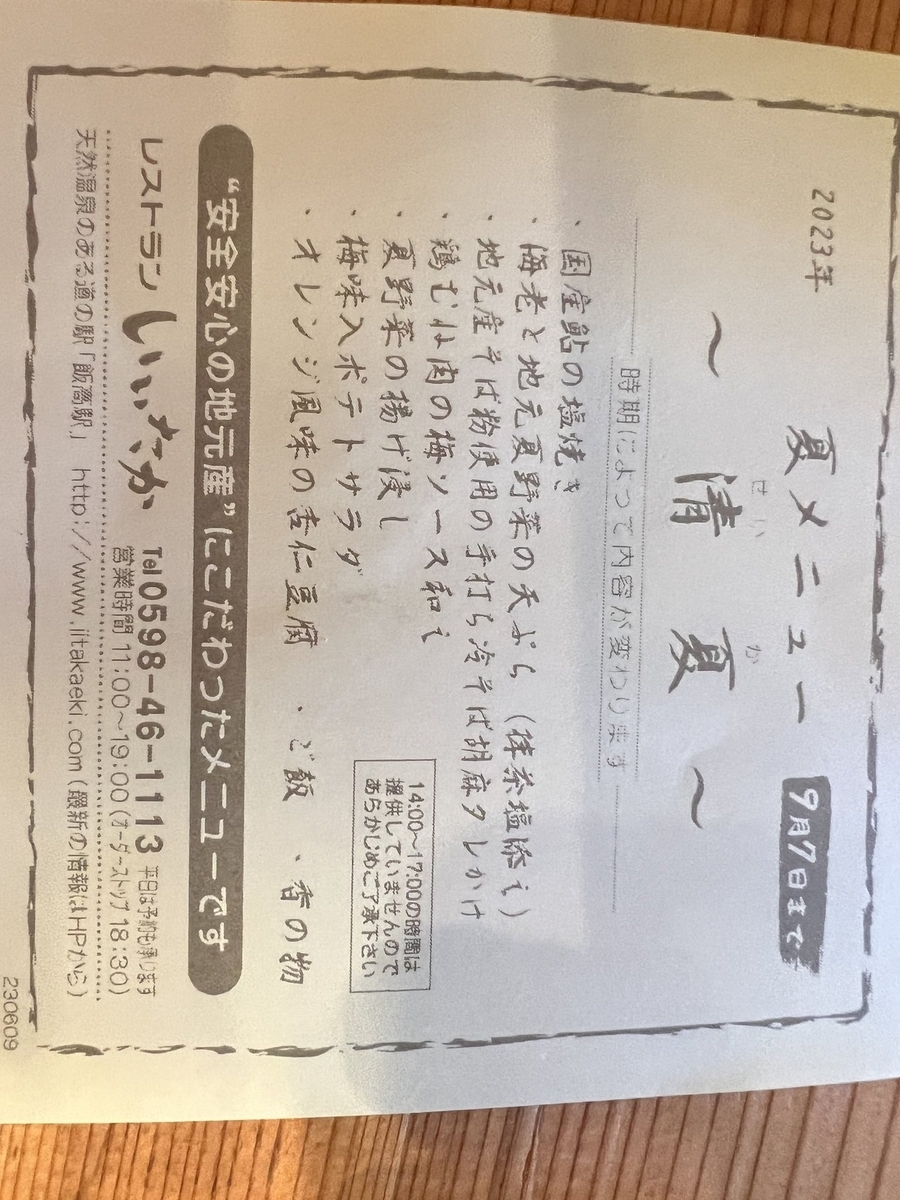 2023年
夏メニュー 9月7日まで
せい か
〜 清 夏 〜
時期によって内容が変わります
・国産鮎の塩焼き
・海老と地元夏野菜の天ぷら（抹茶塩添え）
・地元産そば粉使用の手打ち冷そば胡麻タレかけ
・鶏むね肉の梅ソース和え
・夏野菜の揚げ浸し
・梅味入ポテトサラダ
・オレンジ風味の杏仁豆腐 ・ご飯 ・香の物
14:00〜17:00の時間は
提供していませんので
あらかじめご了承下さい
“安全安心の地元産”にこだわったメニューです
レストラン いいたか Tel 0598-46-1113 平日は予約も承ります
営業時間 11:00〜19:00(オーダーストップ 18:30)
天然温泉のある道の駅「飯高駅」 http://www.iitakaeki.com(最新の情報はHPから)
230609